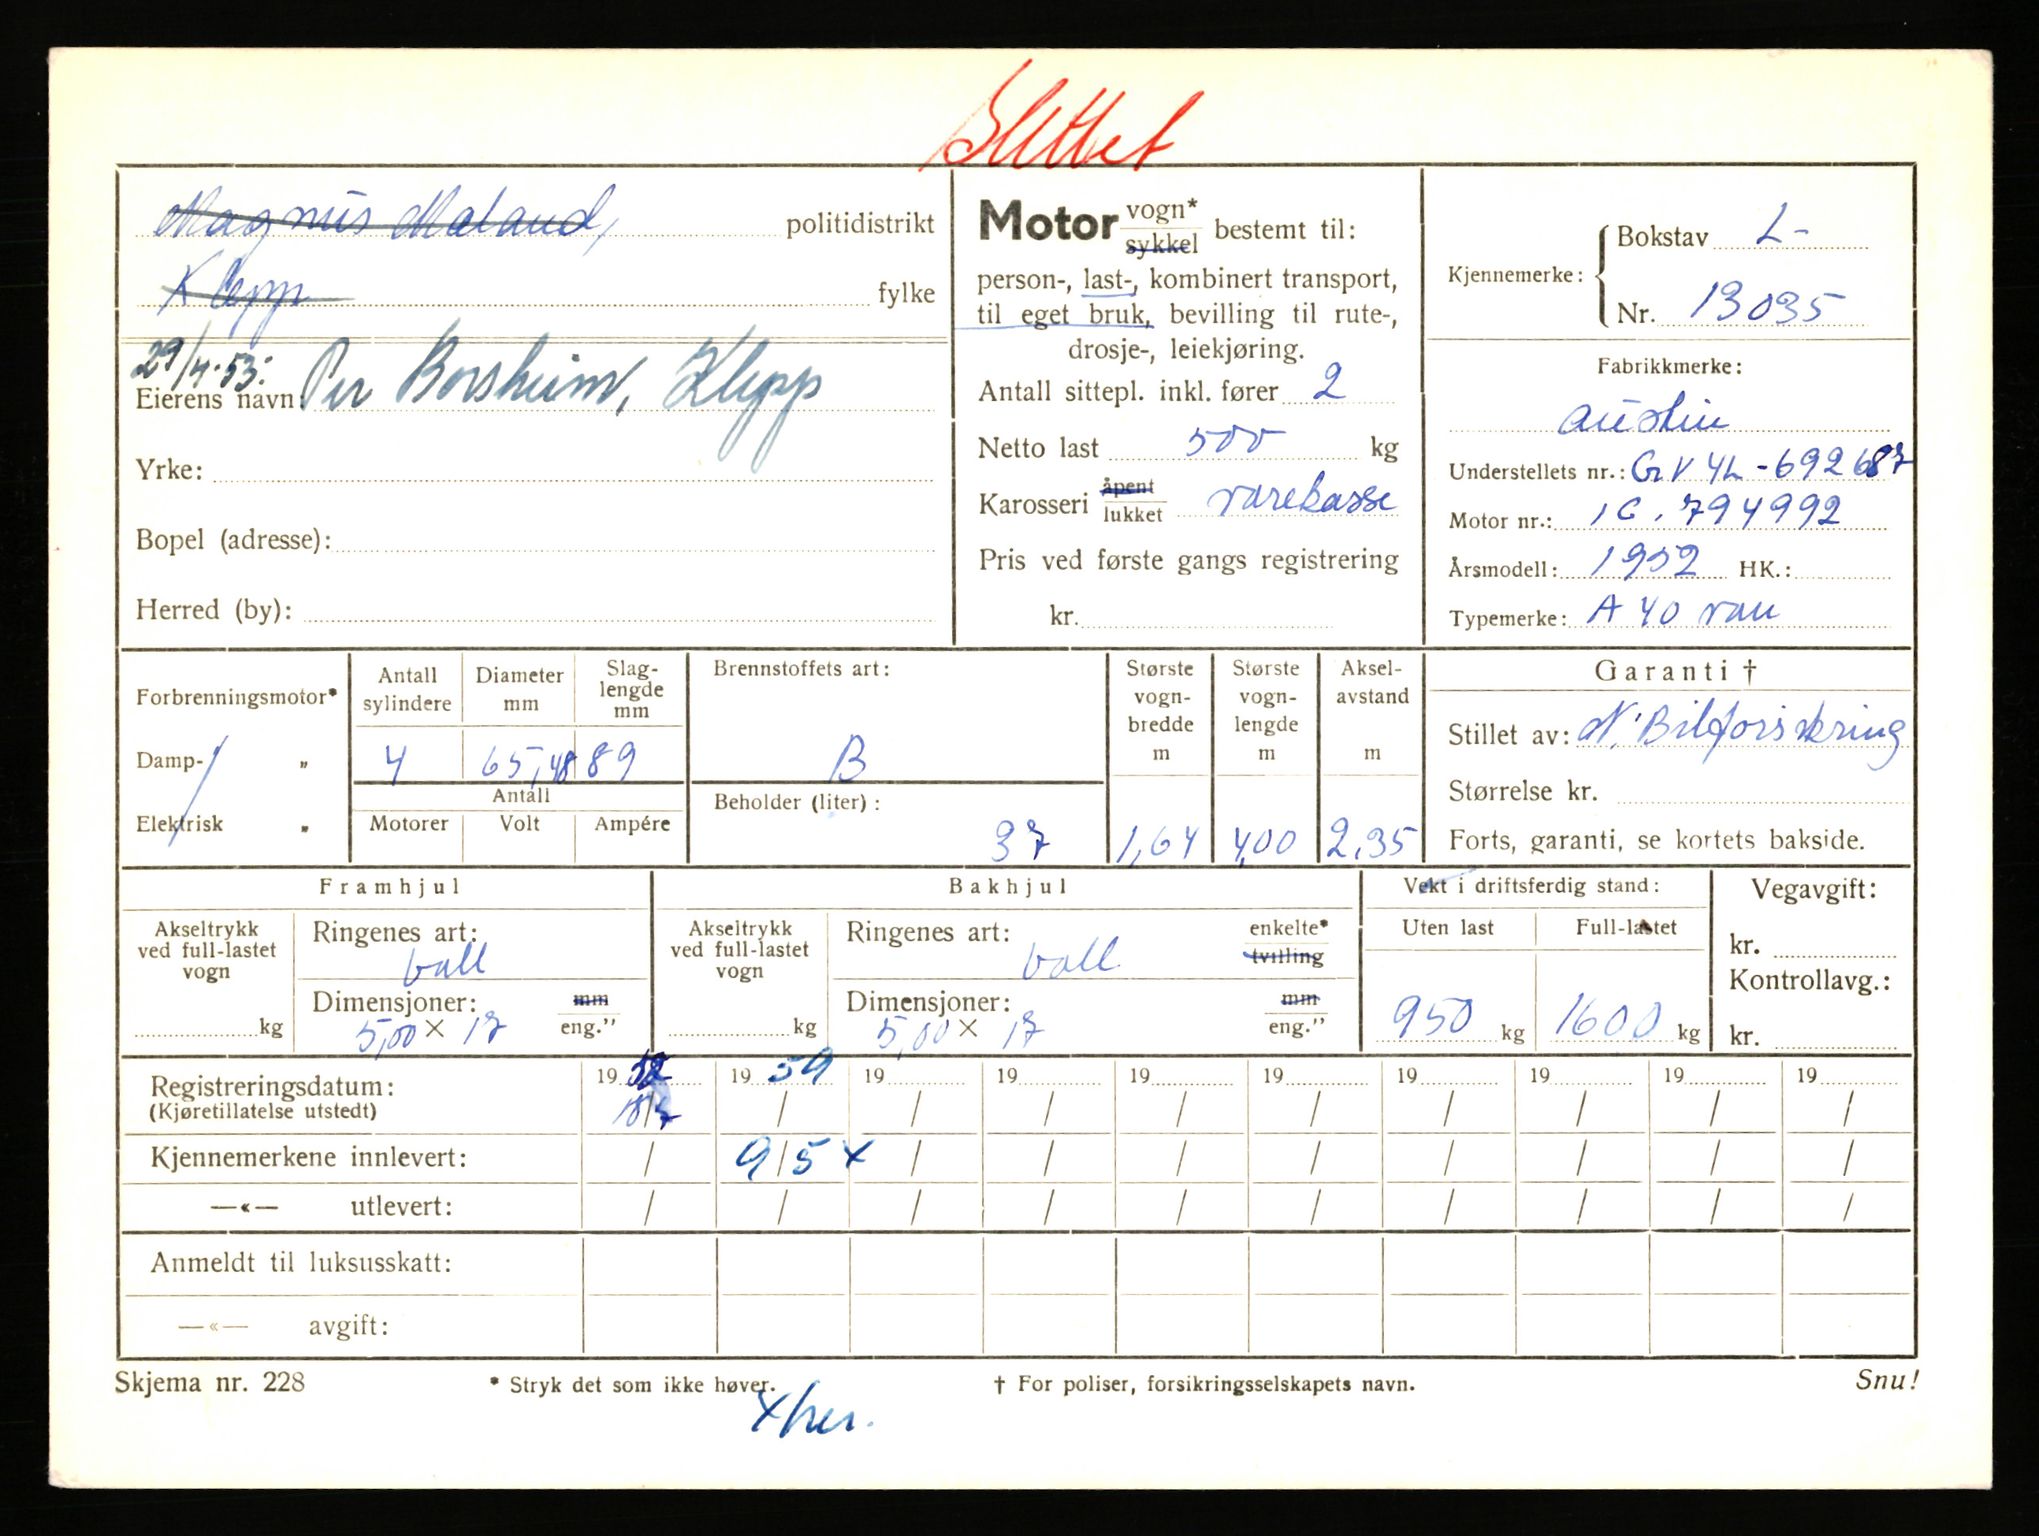 Slettet
Magnus Mæland, politidistrikt
Klepp fylke
29/4-53:
Eierens navn Per Borsheim, Klepp
Yrke:
Bopel (adresse):
Herred (by):
Motor vogn* sykkel bestemt til:
person-, last-, kombinert transport,
til eget bruk, bevilling til rute-,
drosje-, leiekjøring.
Antall sittepl. inkl. fører 2
Netto last 500 kg
Karosseri åpent lukket varekasse
Pris ved første gangs registrering
kr.
Kjennemerke: Bokstav L-
Nr. 13035
Fabrikkmerke:
Austin
Understellets nr.: GV4L-692687
Motor nr.: 1G.794992
Årsmodell: 1952 HK.:
Typemerke: A 40 van
Forbrenningsmotor*
Damp- "
Elektrisk "
Antall sylindere
4
Diameter mm
65,48
Slag-lengde mm
89
Antall
Motorer Volt Ampére
Brennstoffets art:
B
Beholder (liter):
37
Største vogn-bredde m
1,64
Største vogn-lengde m
4,00
Aksel-avstand m
2,35
Garanti †
Stillet av: N. Bilforsikring
Størrelse kr.
Forts, garanti, se kortets bakside.
Framhjul
Akseltrykk ved full-lastet vogn
kg
Ringenes art:
ball
Dimensjoner: mm
5,00 × 17 eng."
Bakhjul
Akseltrykk ved full-lastet vogn
kg
Ringenes art: enkelte*
ball tvilling
Dimensjoner: mm
5,00 × 17 eng."
Vekt i driftsferdig stand:
Uten last Full-lastet
950 kg 1600 kg
Vegavgift:
kr.
Kontrollavg.:
kr.
Registreringsdatum: 19 52 19 59 19 19 19 19 19 19 19 19
(Kjøretillatelse utstedt) / / / / / / / / /
Kjennemerkene innlevert: / 9/5 x / / / / / / / /
—«— utlevert: / / / / / / / / / /
Anmeldt til luksusskatt:
—«— avgift:
Skjema nr. 228 * Stryk det som ikke høver. † For poliser, forsikringsselskapets navn. Snu!
x her.